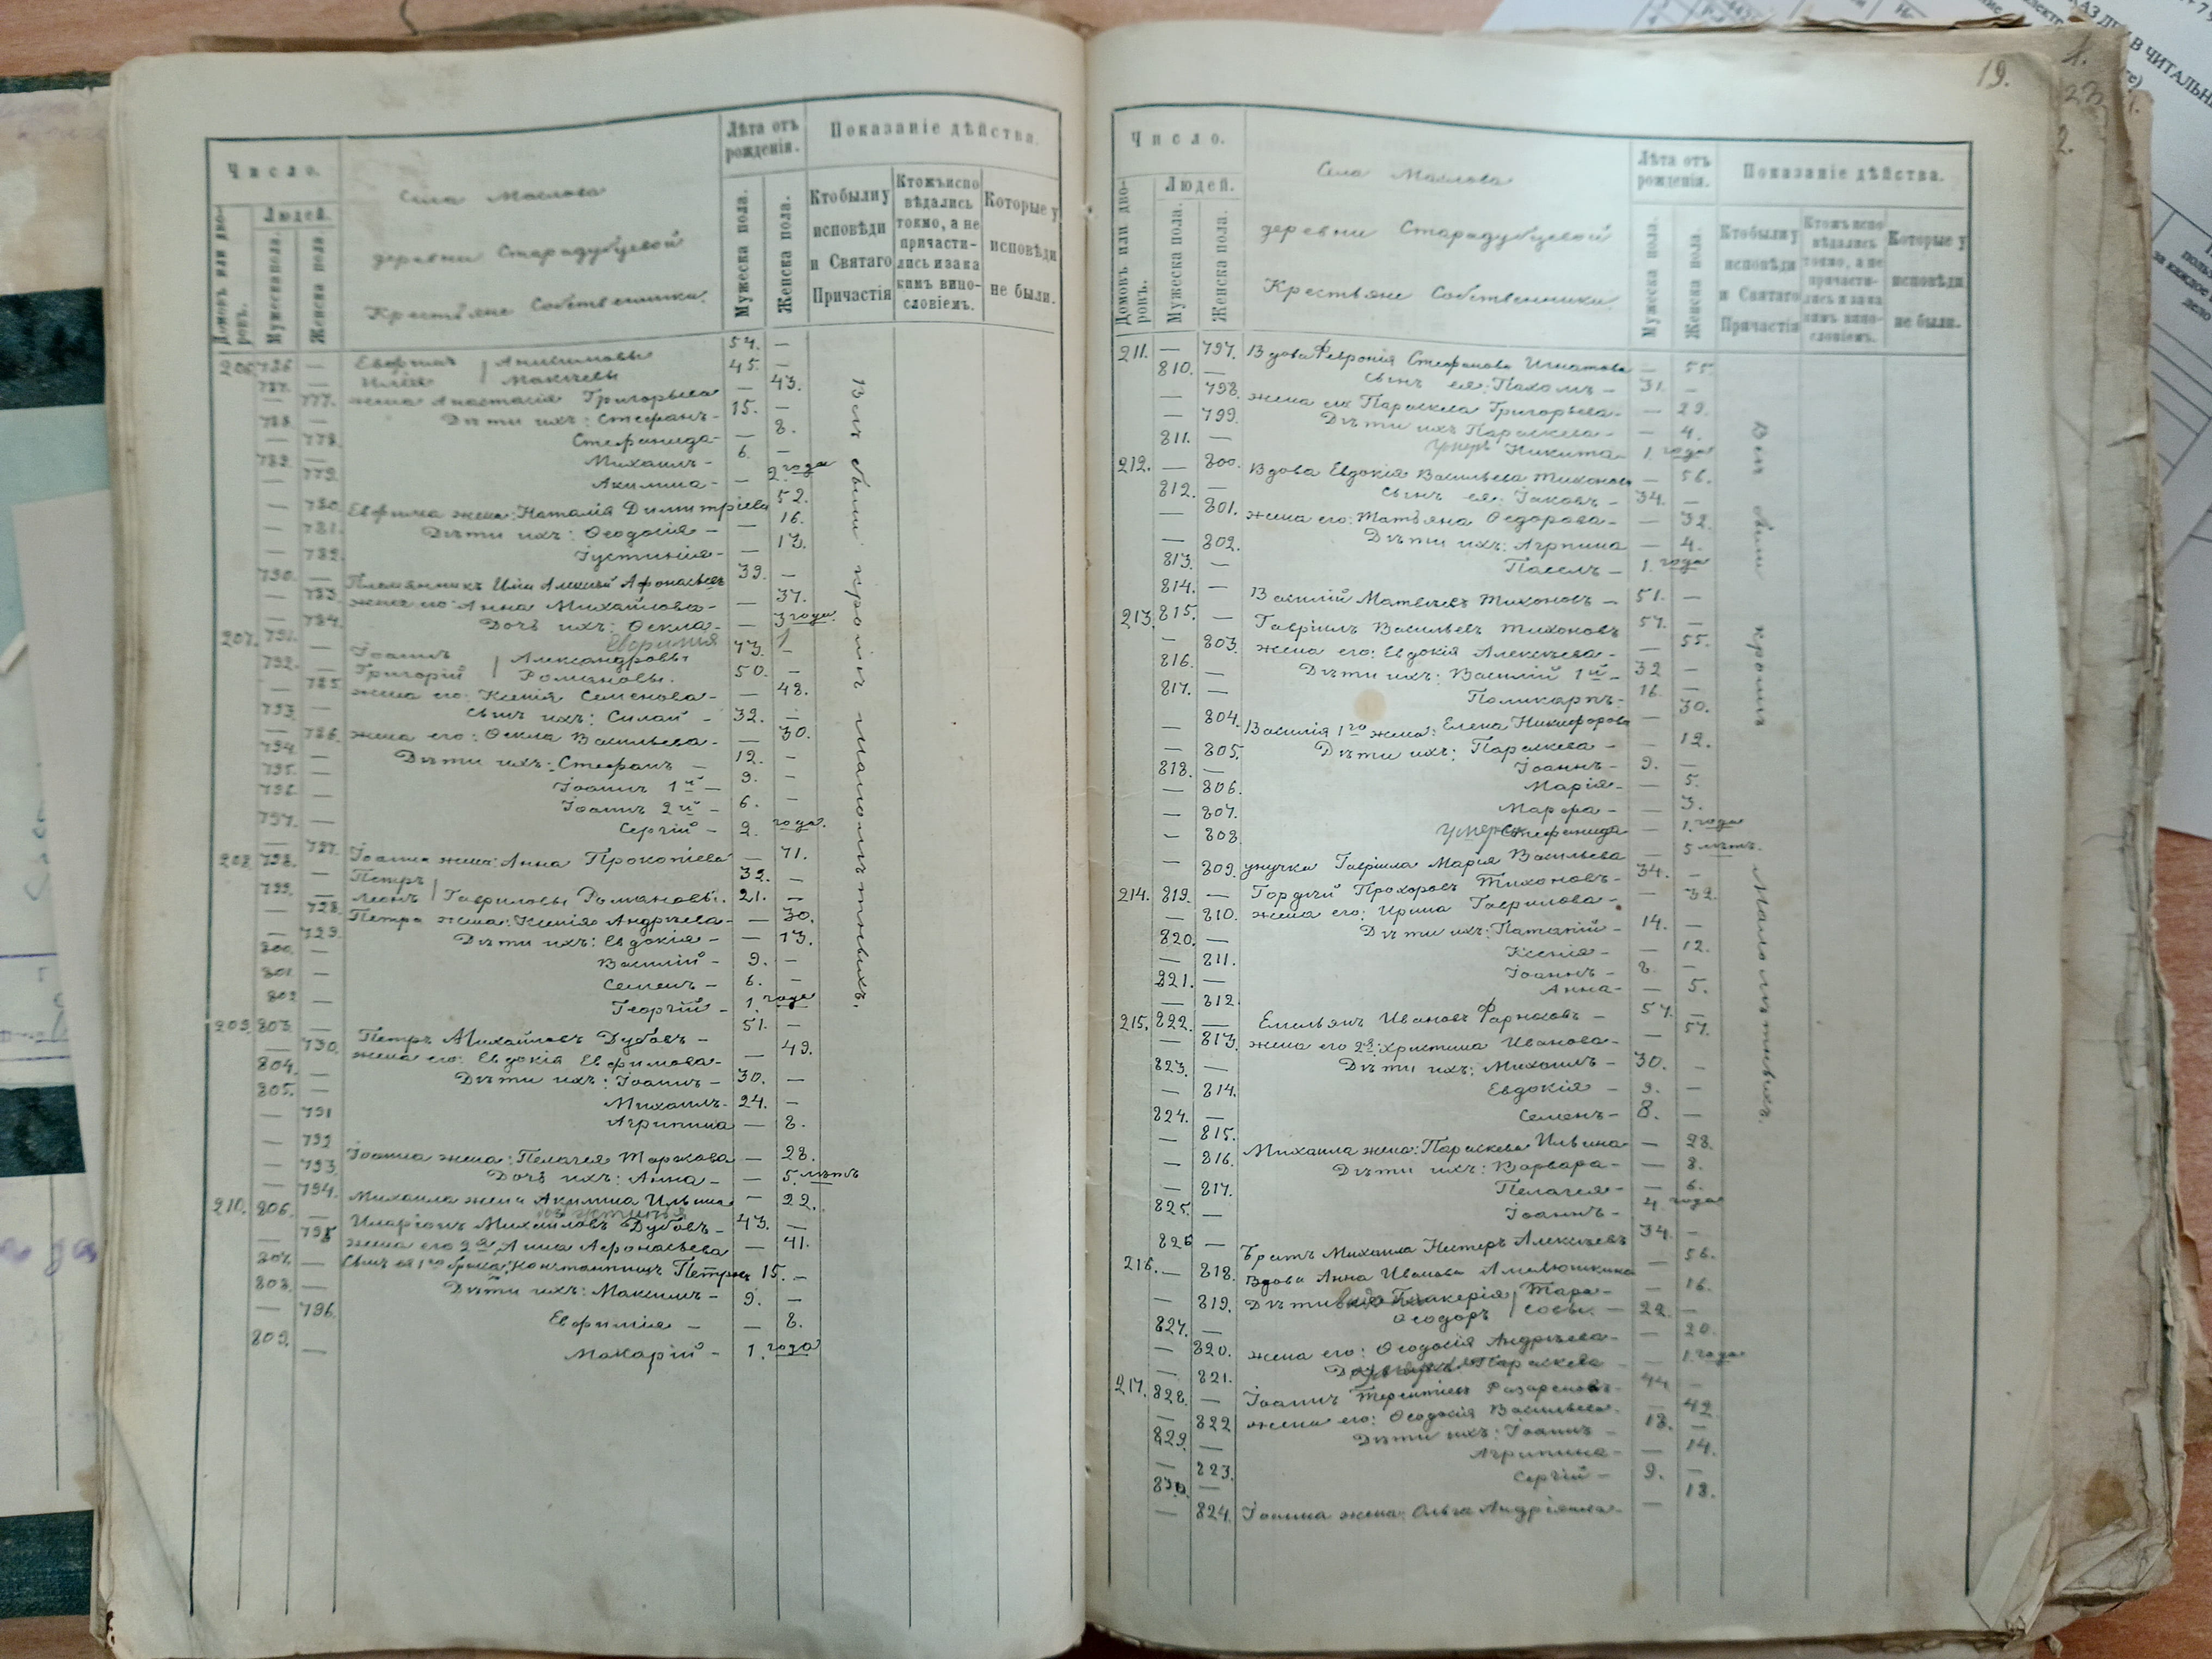 Число.
Домовъ или дворовъ.
Людей.
Мужеска пола.
Женска пола
Села Маслова
деревни Старадубцевой
Крестьяне Собственники.
Лѣта отъ рожденія.
Мужеска пола.
Женска пола.
Показаніе дѣйства.
Кто были у исповѣди и Святаго Причастія
Кто жъ исповѣдались токмо, а не причастились и за какимъ винословіемъ.
Которые у исповѣди не были.
206. 786 — Евфимъ Анисимовы 57. —
787. — Илія Макѣевы 45. —
— 777. жена Анастасія Григорьева — 43.
788. — Дѣти ихъ: Стефанъ — 15. —
— 778. Стефанида — — 8.
789. — Михаилъ — 6. —
— 779. Акилина — — 2. года
— 780. Евфима жена: Наталія Димитріева 52.
— 781. Дѣти ихъ: Ѳеодосія — — 16.
— 782. Іустинія — — 13.
790. — Племянникъ Иліи Алексѣй Афонасьевъ 39. —
— 783. жена его: Анна Михайлова — — 37.
— 784. Дочь ихъ: Ѳекла — — 3 года.
Евфимія 1
207. 791. — Іоаннъ Александровы 73. —
792. — Григорій Романовы. 50. —
— 785. жена его: Ксенія Семенова — — 48.
793. — сынъ ихъ: Силай — 32. —
— 786. жена его: Ѳекла Васильева — — 30.
794. — Дѣти ихъ: Стефанъ — 12. —
795. — Іоаннъ 1й — 9. —
796. — Іоаннъ 2й — 6. —
797. — Сергій — 2. года.
— 787. Іоанна жена: Анна Прокопіева — 71.
208. 798. — Петръ 32. —
799. — Леонъ Гавриловы Романовы. 21. —
— 788. Петра жена: Ксенія Андреева — — 30.
— 789. Дѣти ихъ: Евдокія — — 13.
800. — Василій — 9. —
801. — Семенъ — 6. —
802 — Георгій — 1. года
209. 803. — Петръ Михайловъ Дубовъ — 51. —
— 790. жена его: Евдокія Евфимова — — 49.
804. — Дѣти ихъ: Іоаннъ — 30. —
805. — Михаилъ — 24. —
— 791 Агрипина — 8.
— 792 Іоанна жена: Пелагея Маркова — 28.
— 793. Дочь ихъ: Анна — — 5. лѣтъ
— 794. Михаила жена Акилина Ильина — 22.
210. 806. — Иларіонъ Михайловъ Дубовъ — 43. —
— 795 жена его 2я, Анна Афонасьева — 41.
807. — Сынъ ея 1го брака, Константинъ Петровъ 15. —
808. — Дѣти ихъ: Максимъ — 9. —
— 796. Евфимія — — 8.
809. — Макарій — 1. года
Всѣ были кромѣ малолѣтныхъ.
19.
Число.
Домовъ или дворовъ.
Людей.
Мужеска пола.
Женска пола.
Села Маслова
деревни Старадубцевой
Крестьяне Собственники
Лѣта отъ рожденія.
Мужеска пола.
Женска пола.
Показаніе дѣйства.
Кто были у исповѣди и Святаго Причастія
Кто жъ исповѣдались токмо, а не причастились и за какимъ винословіемъ.
Которые у исповѣди не были.
211. — 797. Вдова Февронія Стефанова Игнатова — 55.
810. — сынъ ея: Пахомъ — 31. —
— 798. жена его Параскева Григорьева — — 29.
— 799. Дѣти ихъ Параскева — — 4.
811. — умеръ Никита — 1. года
212. — 800. Вдова Евдокія Васильева Тихонова — 56.
812. — сынъ ея: Іаковъ — 34. —
— 801. жена его: Татьяна Ѳедорова — — 32.
— 802. Дѣти ихъ: Агрпина — 4.
813. — Павелъ — 1. года
814. — Василій Матвѣевъ Тихоновъ — 51. —
213. 815. — Гавріилъ Васильевъ Тихоновъ 57. —
— 803. жена его: Евдокія Алексѣева — — 55.
816. — Дѣти ихъ: Василій 1й — 32 —
817. — Поликарпъ — 16. —
— 804. Василія 1го жена: Елена Никифорова — 30.
— 805. Дѣти ихъ: Параскева — — 12.
818. — Іоаннъ — 9. —
— 806. Марія — — 5.
— 807. Марфа — — 3.
— 808 умерла Стефанида — 1. года
— 809. унучка Гавріила Марія Васильева — 5 лѣтъ.
214. 819. — Гордѣй Прохоровъ Тихоновъ — 34. —
— 810. жена его: Ирина Гаврилова — — 32.
820. — Дѣти ихъ: Патапій — 14. —
— 811. Ксенія — — 12.
821. — Іоаннъ — 8. —
— 812 Анна — — 5.
215. 822. — Емельянъ Ивановъ Фарносовъ — 57. —
— 813. жена его 2я: Христина Иванова — — 57.
823. — Дѣти ихъ: Михаилъ — 30. —
— 814. Евдокія — 9. —
824. — Семенъ — 8. —
— 815. Михаила жена: Параскева Ильина — 28.
— 816. Дѣти ихъ: Варвара — — 8.
— 817. Пелагея — — 6.
825. — Іоаннъ — 4. года
826 — Братъ Михаила Нестеръ Алексѣевъ 34. —
216. — 818. Вдова Анна Иванова — 56.
— 819. Дѣти Гликерія Тара- — 16.
827. — Ѳеодоръ совы. — 22. —
— 820. жена его: Ѳеодосія Андреева — — 20.
— 821. Параскева — 1. года
217. 828. — Іоаннъ Терентіевъ 44 —
— 822 жена его: Ѳеодосія Васильева. — 42.
829. — Дѣти ихъ: Іоаннъ — 18. —
— 823. Агрипина — — 14.
830. — Сергій — 9. —
— 824. Іоанна жена: Ольга Андріянова — — 18.
Всѣ были кромѣ малолѣтныхъ.